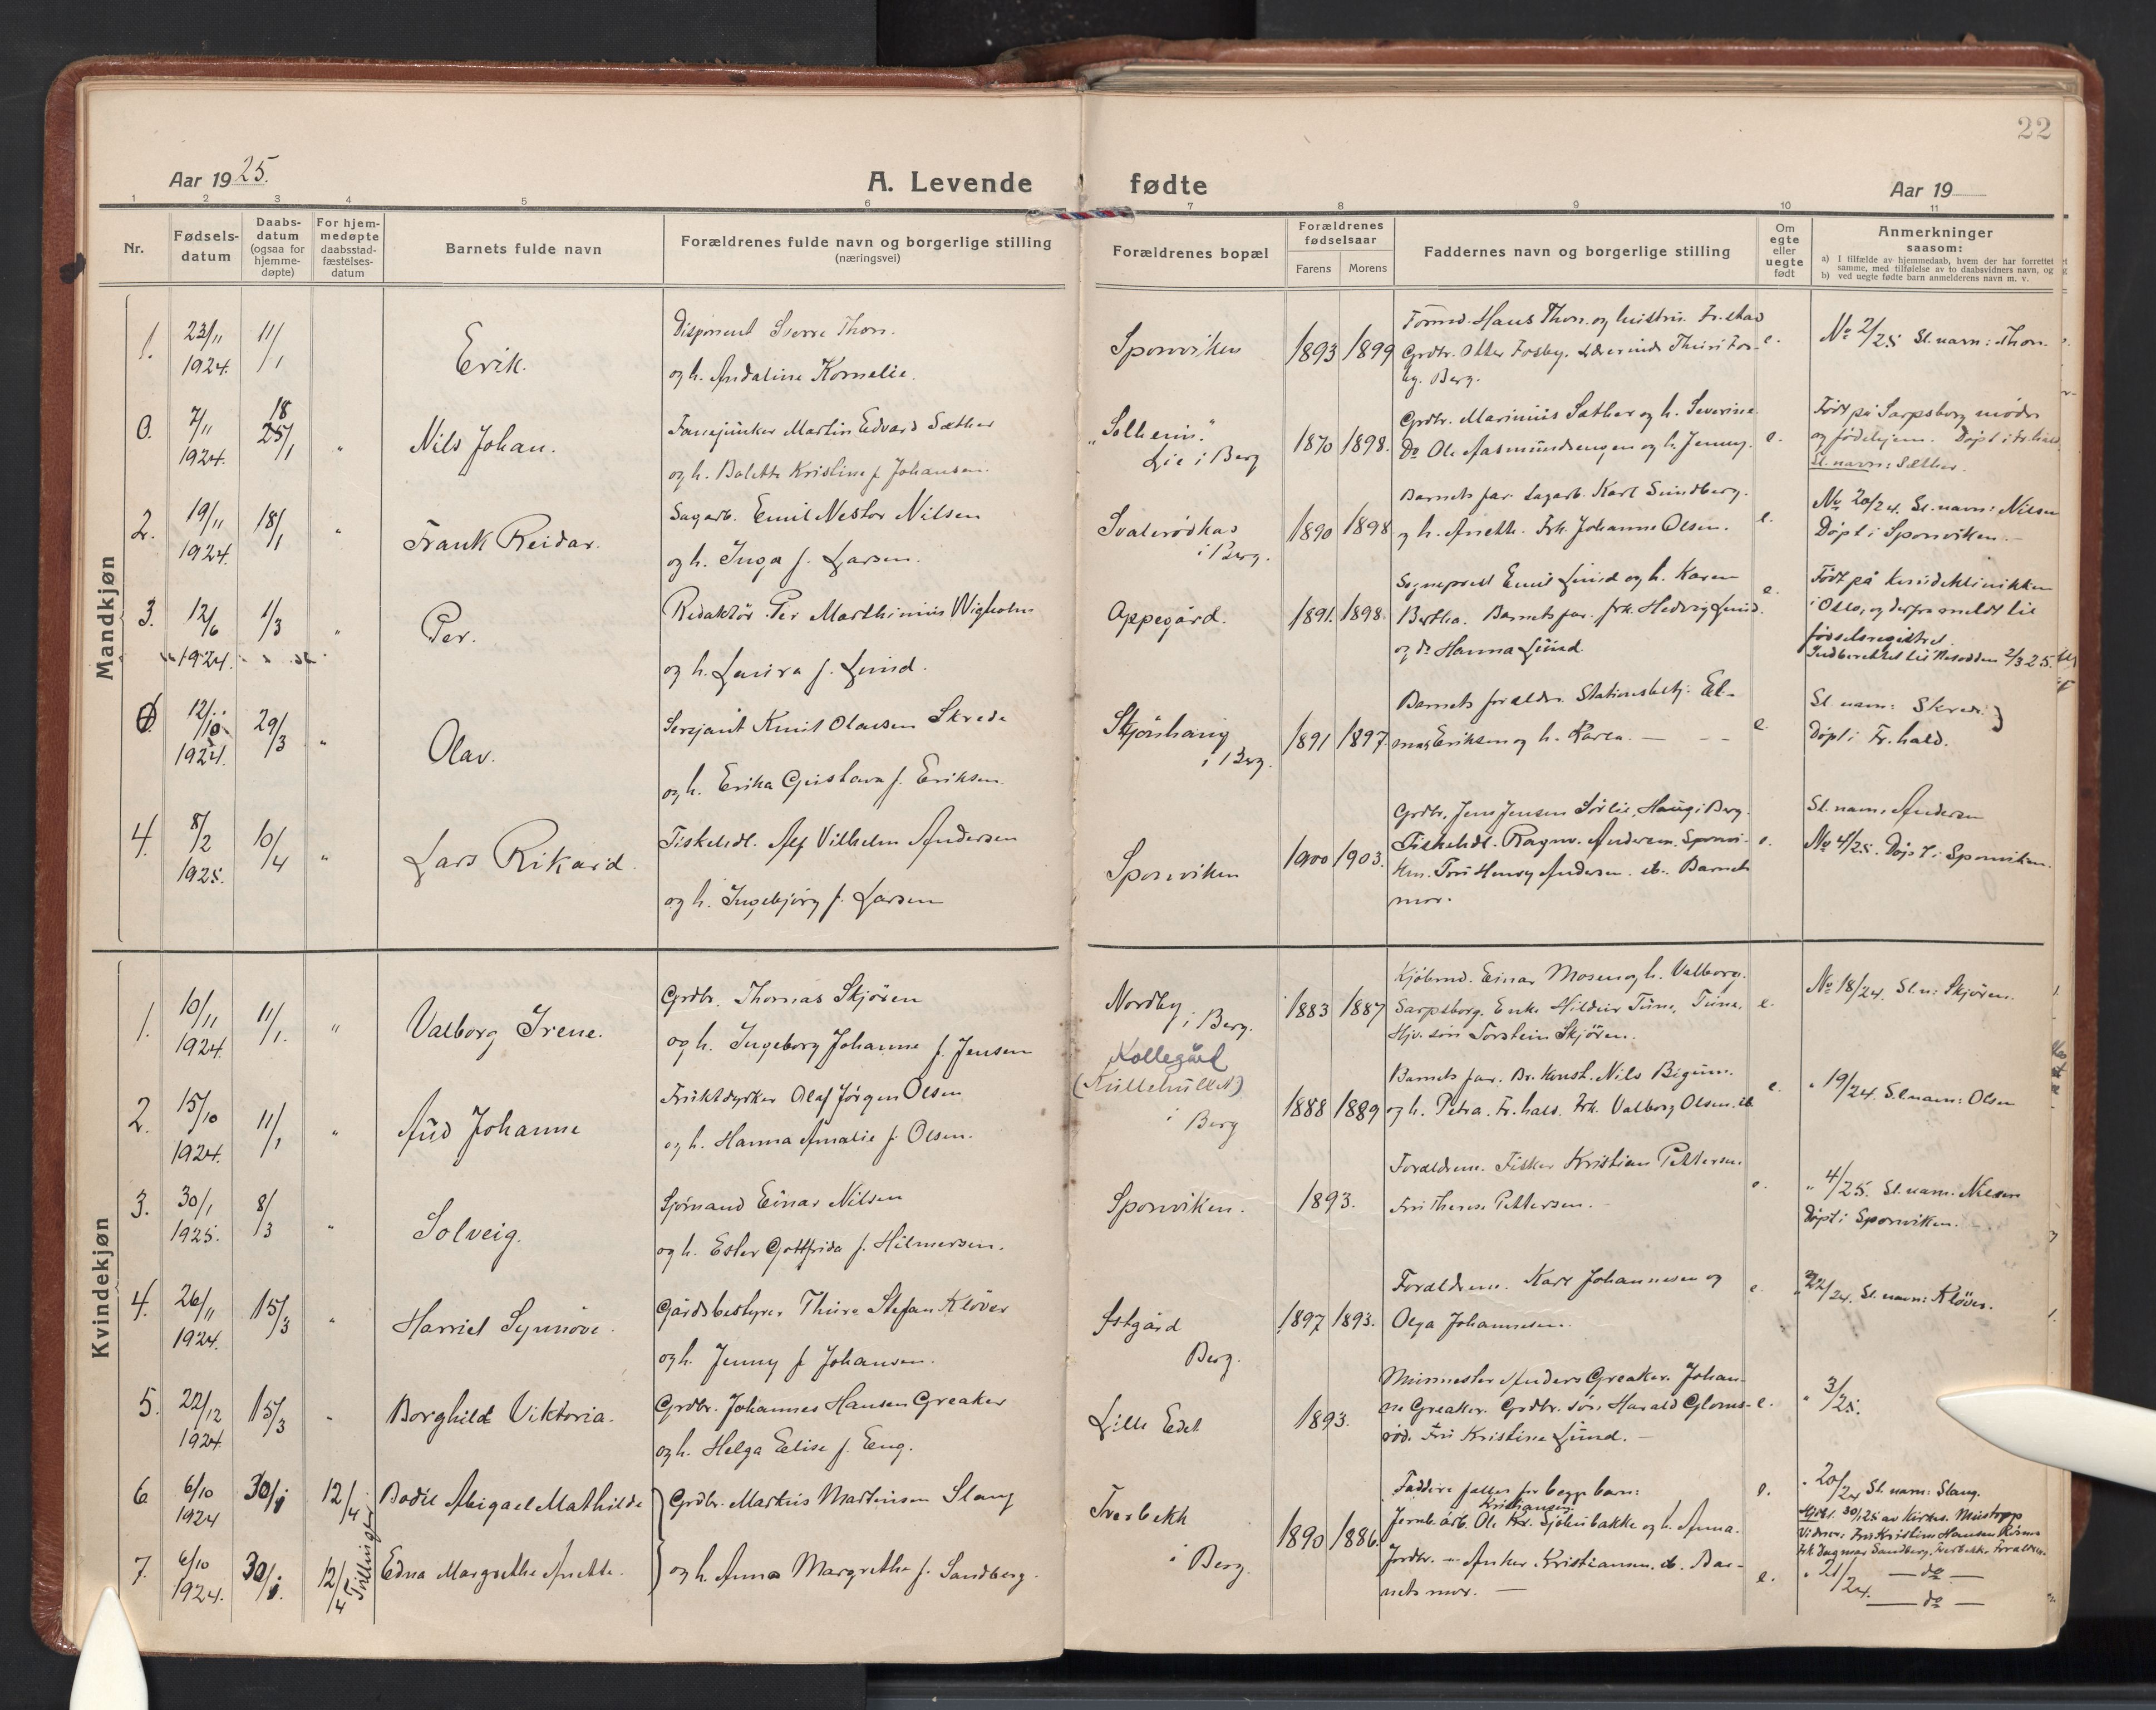 22
Aar 1925.
A. Levende fødte
Aar 19
1 2 3 4 5 6 7 8 9 10 11
Nr.
Fødsels-
datum
Daabs-
datum
(ogsaa for
hjemme-
døpte)
For hjem-
medøpte
daabsstad-
fæstelses-
datum
Barnets fulde navn
Forældrenes fulde navn og borgerlige stilling
(næringsvei)
Forældrenes bopæl
Forældrenes
fødselsaar
Farens Morens
Faddernes navn og borgerlige stilling
Om
egte
eller
uegte
født
Anmerkninger
saasom:
a) I tilfælde av hjemmedaab, hvem der har forrettet
samme, med tilføielse av to daabsvidners navn, og
b) ved uegte fødte barn anmelderens navn m. v.
Mandkjøn
1.
23/11
1924.
11/1
Erik.
Disponent Sverre Thon.
og h. Andaline Kornelie.
Sponviken
1893 1899
Hans Thon og hustru. Fr.stad
Grdbr. Otter Fosby. Lærerinde Thuri Fos-
by. Berg.
e.
No 2/25 Sl. navn: Thon.
0.
7/11
1924.
18
25/1
"
Nils Johan.
Fanejunker Martin Edvard Sæther
og h. Bolette Kristine f. Johansen.
"Solheim."
Lie i Berg
1870 1898.
Grdbr. Marinius Sæther og h. Severine
Do Ole Aasmundsengen og h. Jenny.
e.
Født på Sarpsborg mødre
og fødehjem. Døpt i Fr.hald
Sl. navn: Sæther.
2.
19/11
1924.
18/1
"
Frank Reidar.
Sagarb. Emil Nestor Nilsen
og h. Inga f. Larsen.
Svalerødkas
i Berg.
1890 1898
Barnets far. Sagarb. Karl Sundberg.
og h. Anette. Frk. Johanne Olsen.
e.
No 20/24. Sl. navn: Nilsen
Døpt i Sponviken.
3.
12/6
1924.
1/3
"
Per.
Redaktør Per Marthinius Wigholm
og h. Laura f. Lund.
Oppegård.
1891. 1898.
Sogneprest Emil Lund og h. Karen
Bertha. Barnets far. frk. Hedvig Lund.
og do Hanna Lund.
e.
Født på kvindeklinikken
i Oslo, og derfra meldt til
fødselsregistret.
Indberettet til Nesodden 2/3 25.
0.
12/10
1924.
29/3
"
Olav.
Serjant Knut Olavsen Skrede
og h. Erika Gustava f. Eriksen.
i Berg.
1891 1897.
Barnets foreldre. Stationsbetj. El-
mar Eriksen og h. Karen. —
e.
Sl. navn: Skrede.
Døpt i Fr. hald.
4.
8/2
1925.
10/4
"
Lars Rikard.
Fiskehdl. Alf Vilhelm Andersen
og h. Ingebjørg f. Larsen
Sponviken
1900 1903.
Grdbr. Jens Jensen Sørlie, Haug i Berg.
Fiskehdl. Ragnv. Andersen. Sponvi-
ken. Fru Henny Andersen. ib. Barnets
mor.
e.
Sl. navn: Andersen
No 4/25. Døpt i Sponviken.
Kvindekjøn
1.
10/11
1924.
11/1.
"
Valborg Irene.
Grdbr. Thomas Skjøren
og h. Ingeborg Johanne f. Jensen
Nordby
i Berg.
1883 1887
Kjøbmd. Einar Mosen og h. Valborg.
Sarpsborg. Enke Hildur Tune, Tune.
Torstein Skjøren.
e.
No 18/24. Sl. n: Skjøren.
2.
15/10
1924.
11/1
"
Aud Johanne
Fruktdyrker Olaf Jørgen Olsen.
og h. Hanna Amalie f. Olsen.
Kollegård
i Berg
1888 1889
Barnets far. Nils Bigum.
og h. Petra. Fr.hald. Frk. Valborg Olsen. ib.
e.
" 19/24. Sl. navn: Olsen
3.
30/1
1925.
8/3
"
Solveig.
Sjømand Einar Nilsen
og h. Ester Gottfrida f. Hilmersen.
Sponviken.
1893.
Forældrene. Fisker Kristian Pettersen.
Fru Therese Pettersen.
e.
" 4/25. Sl. navn. Nilsen
Døpt i Sponviken.
4.
26/11
1924.
15/3
"
Harriet Synnøve.
Gårdsbestyrer Thure Stefan Kløver
og h. Jenny f. Johansen.
Østgård
Berg.
1897 1893.
Forældrene. Karl Johannesen og
Olga Johannesen.
e
" 22/24. Sl. navn: Kløver.
5.
22/12
1924.
15/3
"
Borghild Viktoria.
Grdbr. Johannes Hansen Greaker
og h. Helga Elise f. Eng.
Lille Edet
1893.
Murmester Anders Greaker. Johan-
ne Greaker. Grdbr. søn Harald Gloms-
rød. Fru Kristine Lund. —
e.
" 3/25.
6
6/10
1924
30/1
12/4
Bodil Abigael Mathilde
Grdbr. Markus Martinsen Slang
Tverbekk
i Berg.
1890 1886.
Faddere fælles for begge barn:
Kristiansen.
Jernb. arb. Ole Kr. Sjølubakke og h. Anna.
e.
" 20/24 Sl. navn: Slang.
Hjdbt. 30/1 25 av
Vidner: Fru Kristine Hansen
Frk Dagmar Sandberg. Tverbekk. Foreldre.
7.
6/10
1924.
30/1.
12/4
Trillinger
Edna Margrethe Anette.
og h. Anna Margrethe f. Sandberg.
Jordbr. — Anker Kristiansen. ib. Bar-
nets mor. —
e.
" 21/24. — do —
— do —